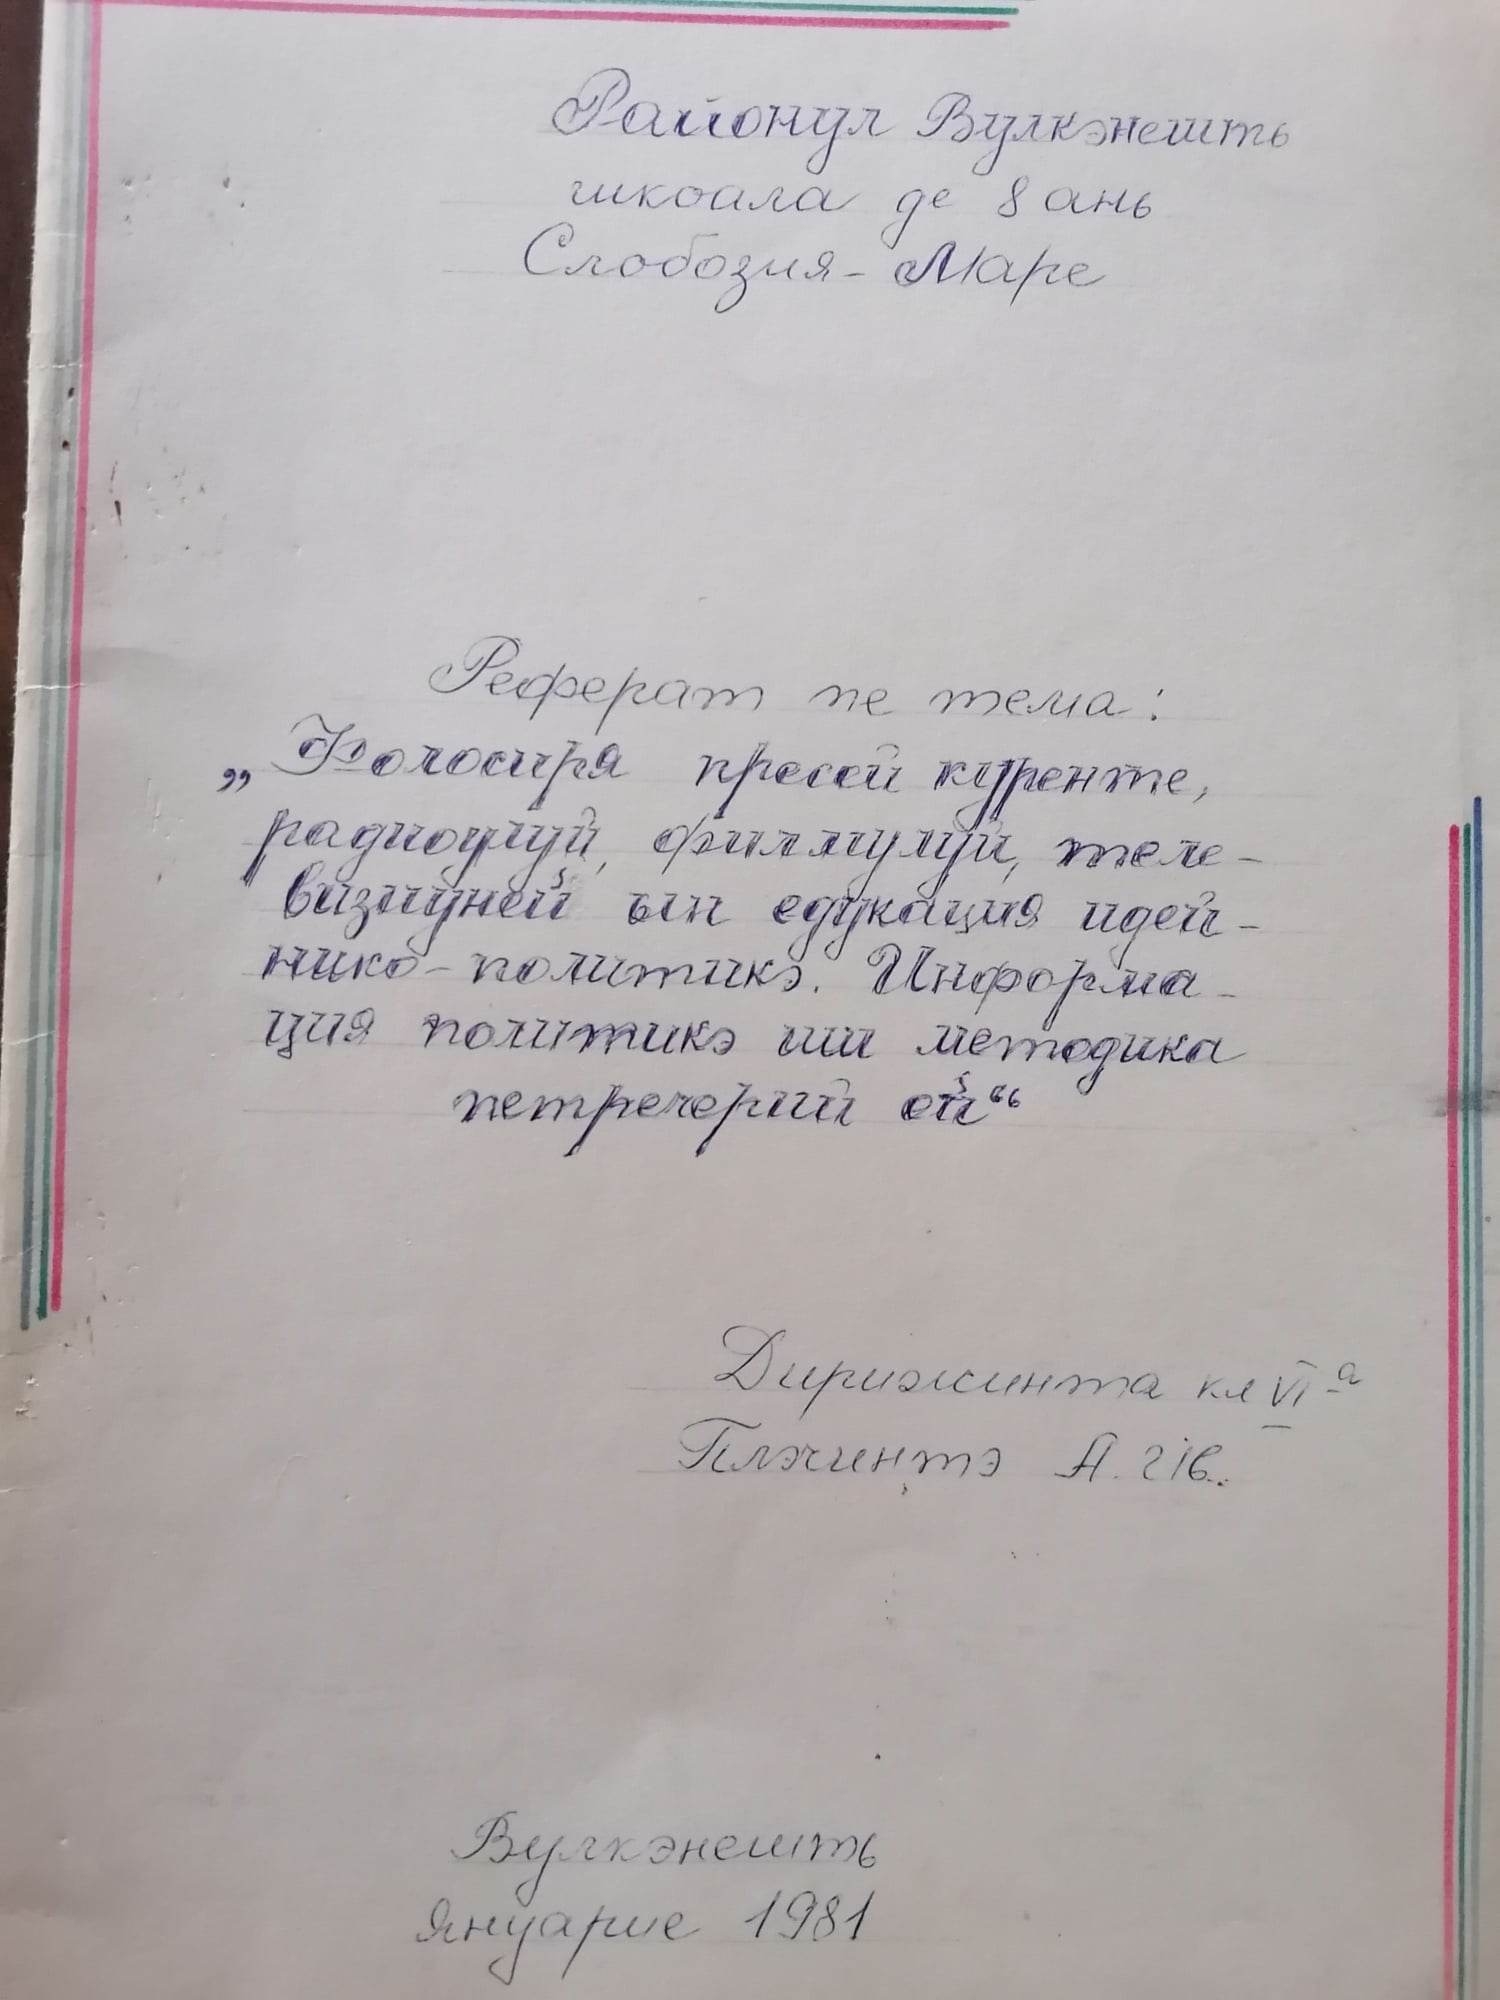 Районул Вулкэнешть
шкоала де 8 ань
Слобозия-Маре
Реферат пе тема:
„Фолосиря пресей куренте,
радиоулуй, филмулуй, теле-
визиуней ын едукация идей-
нико-политикэ. Информа-
ция политикэ ши методика
петречерий ей“
Дирижинта кл VI а
Плэчинтэ А. Ив.
Вулкэнешть
Януарие 1981